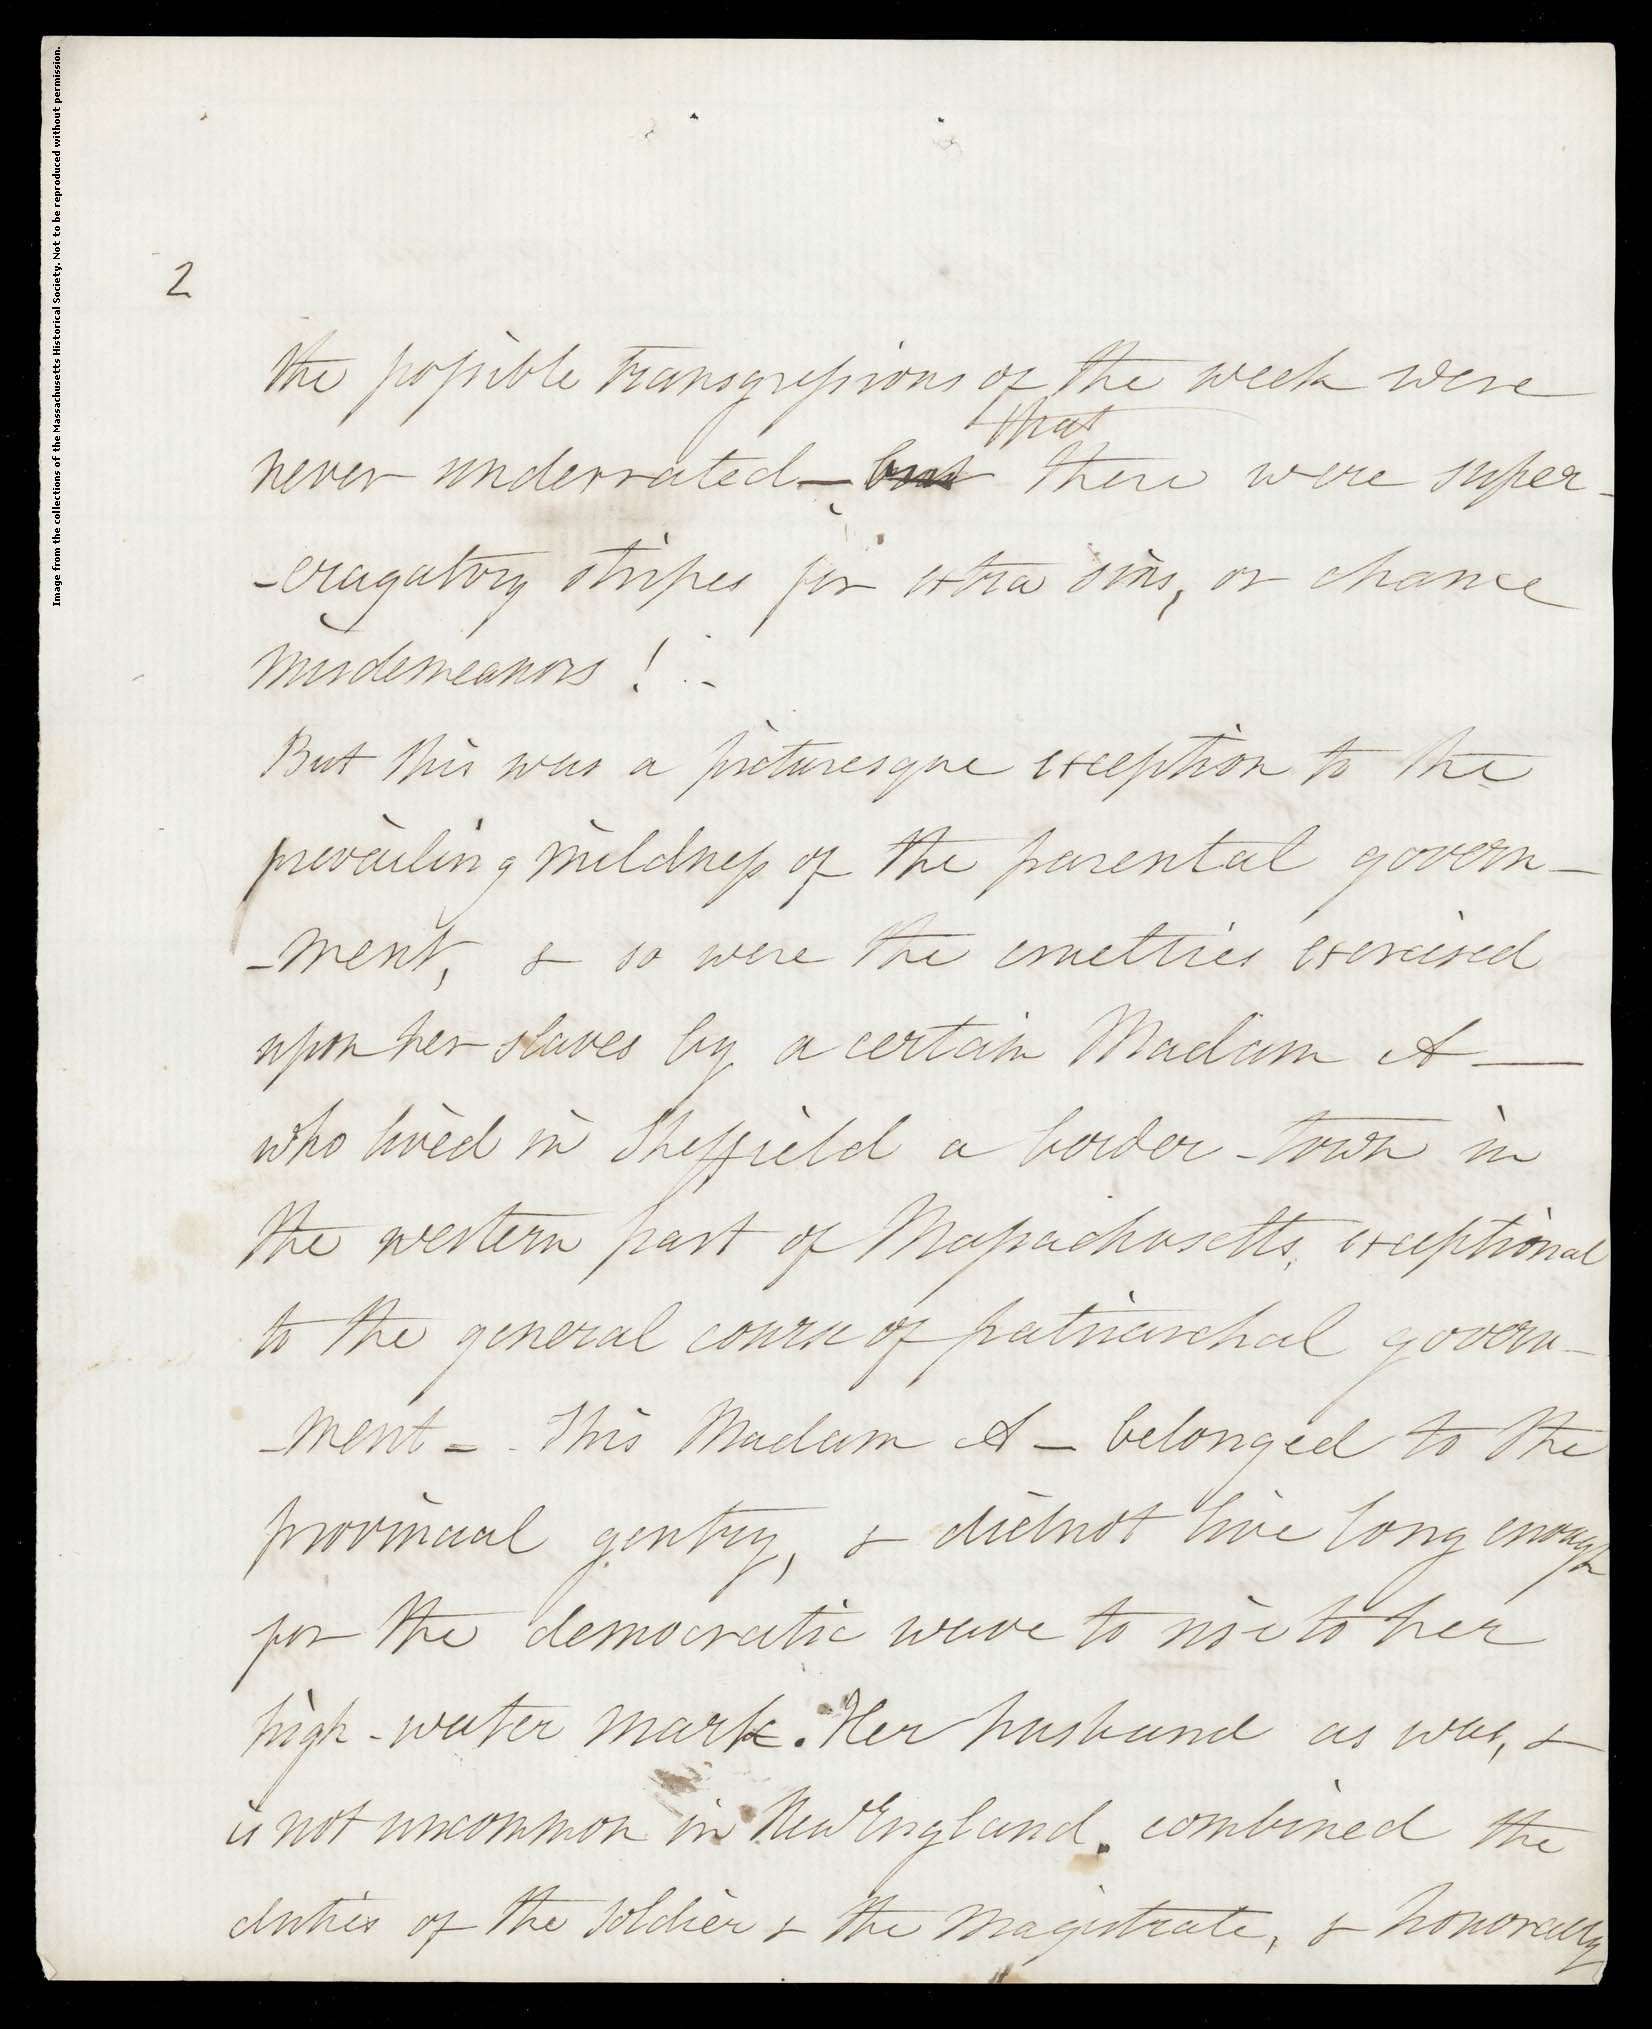 Image from the collections of the Massachusetts Historical Society. Not to be reproduced without permission.
2
the possible transgressions of the week were
that
never underrated — but there were super-
-eragatory stripes for extra sins, or chance
misdemeanors ! -
But this was a picturesque exception to the
prevailing mildness of the parental govern-
-ment, & so were the cruelties exercised
upon her slaves by a certain Madam A—
who lived in Sheffield a border-town in
the western part of Massachusetts, exceptional
to the general course of patriarchal govern-
-ment - This Madam A— belonged to the
provincial gentry, & did not live long enough
for the democratic wave to rise to her
high-water mark. Her husband as was, &
is not uncommon in New England, combined the
duties of the soldier & the magistrate, & honorably